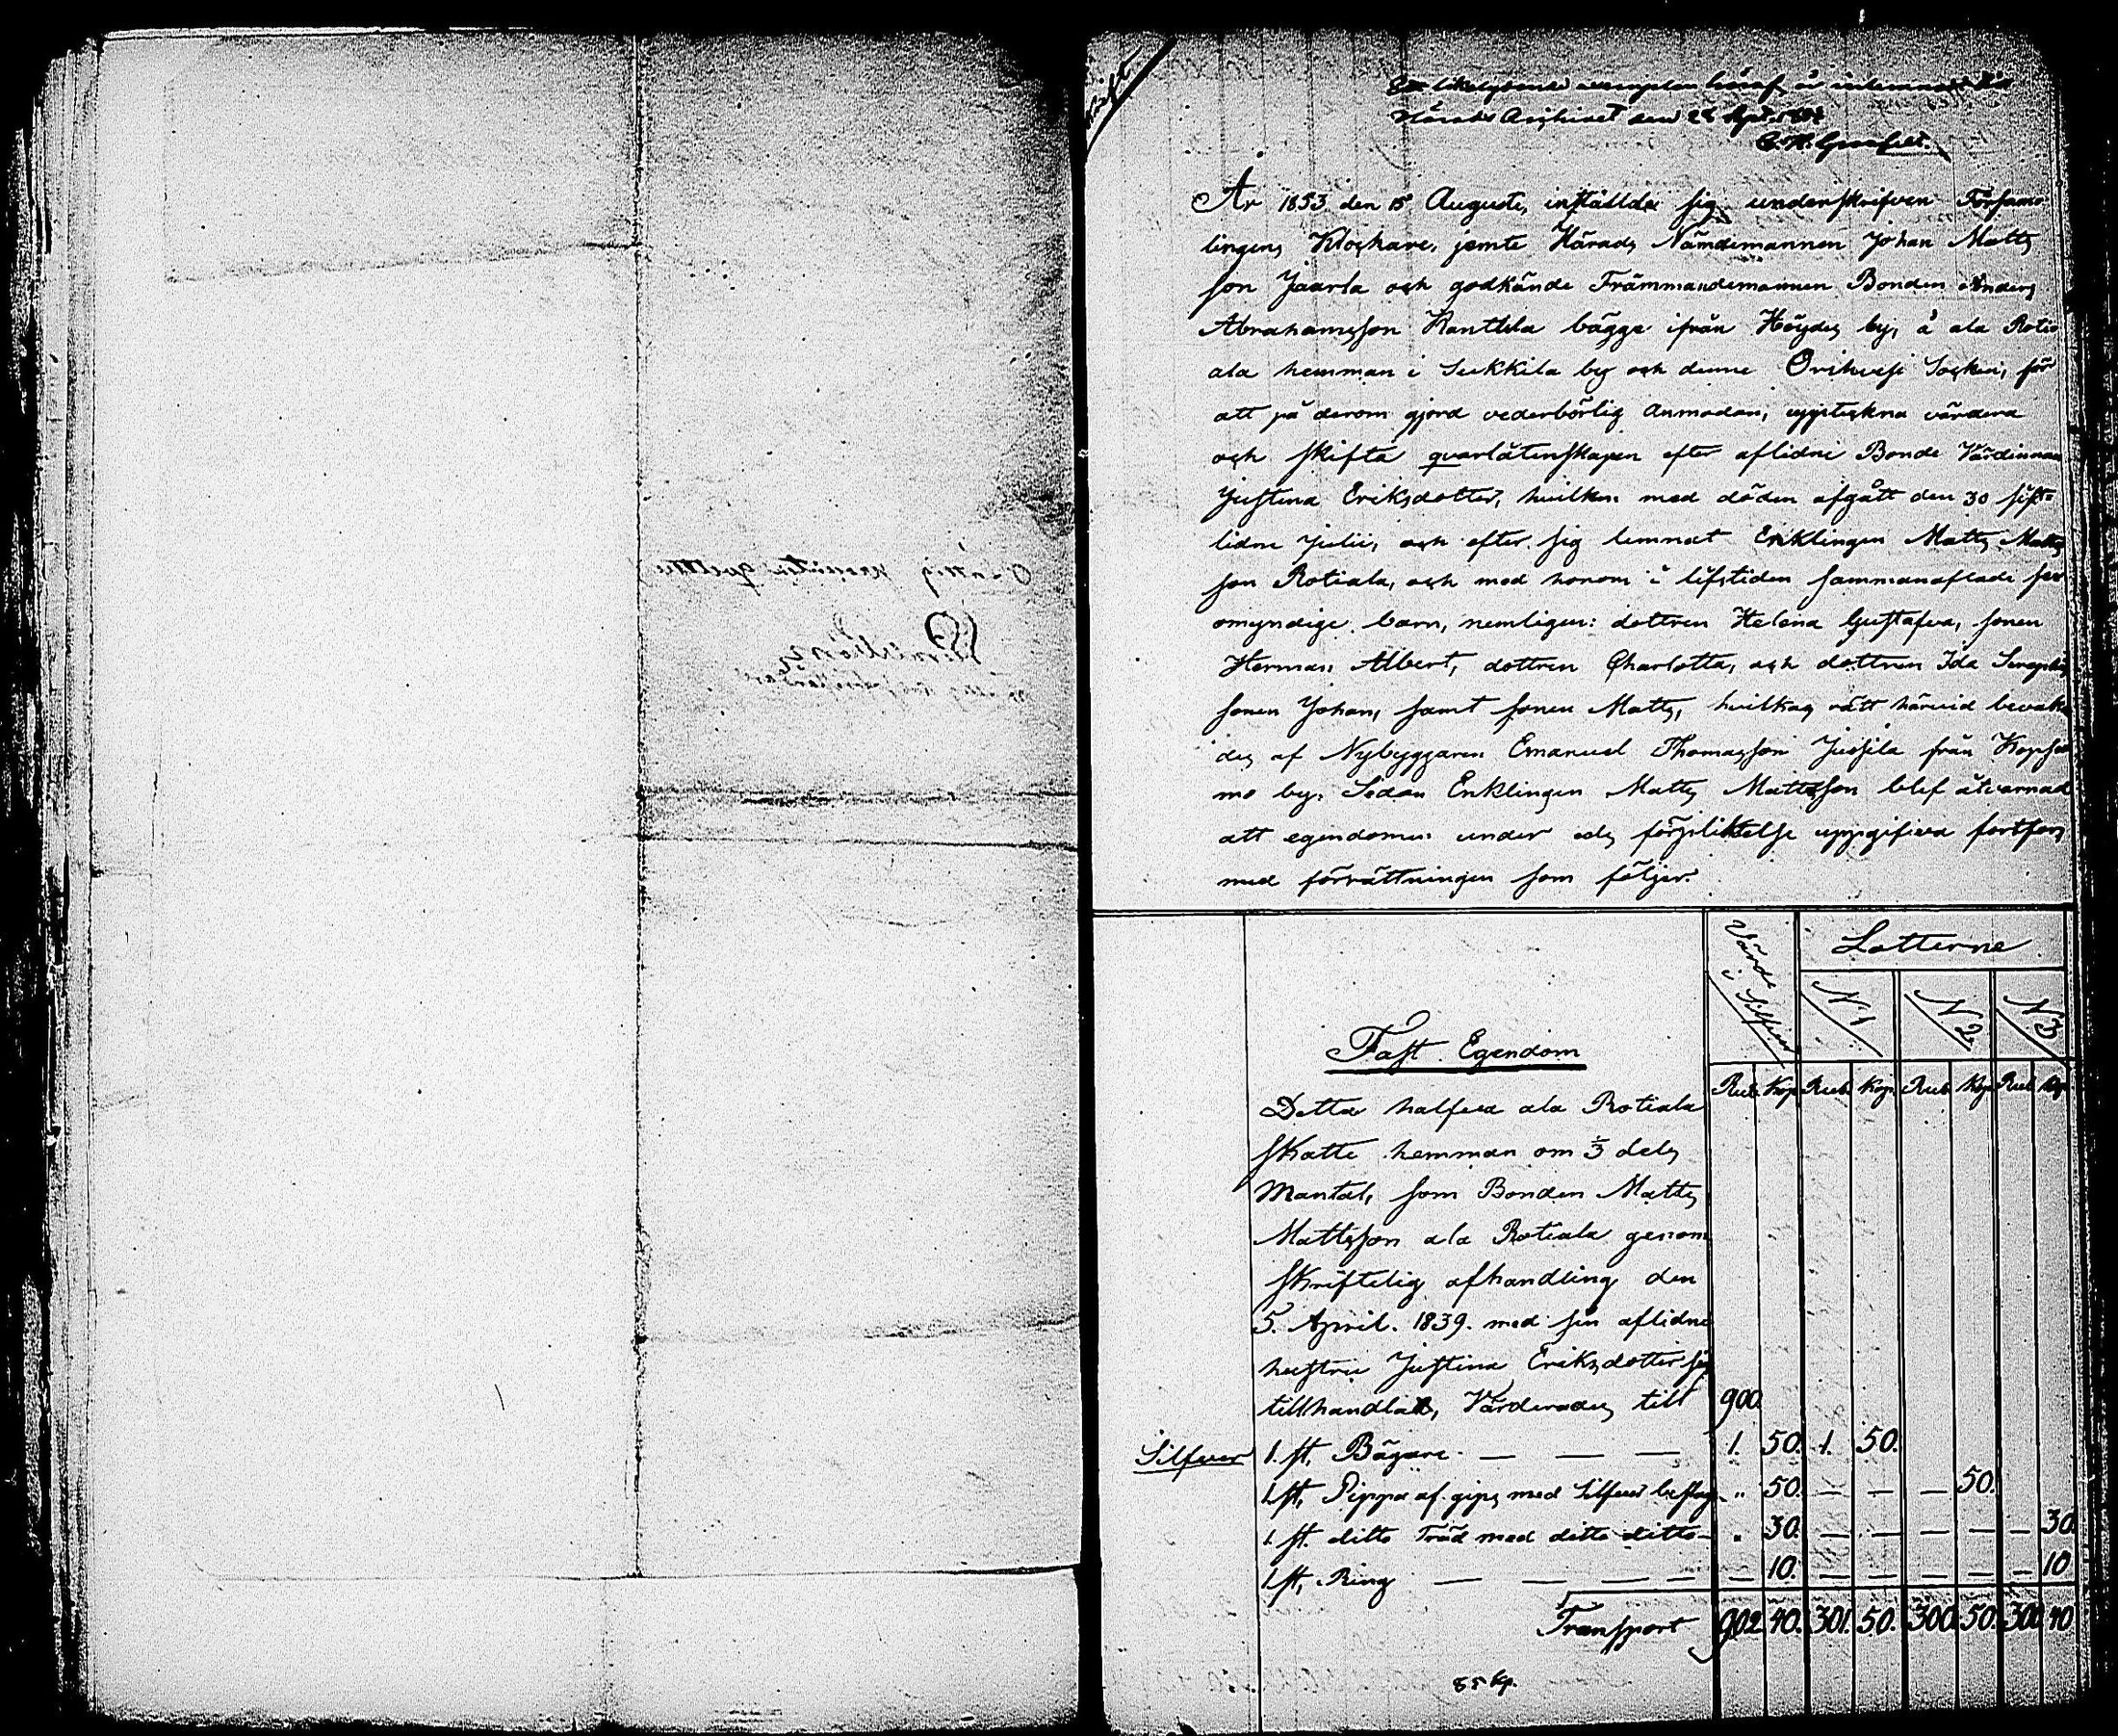 Ett likalydande exemplar häraf är inlemnadt till
Härads Archivet den 28 Apr.
År 1853 den 15 Augusti, inställde sig underskrifven Försam-
lingens Klockare, jemte Härads Nämdemannen Johan Matts
son Jaarla och godkände Främmandemannen Bonden Anders
Abrahamsson Kanttila bägge ifrån Höydes by, å ala Roti
ala hemman i Sukkila by och denne Orihvesi Socken, för
att på derom gjord vederbörlig anmodan, uppteckna värdera
och skifta qvarlåtenskapen efter aflidne Bonde Värdinnan
Justina Eriksdotter, hvilken med döden afgått den 30 sist-
lidne Julii, och efter sig lemnat Enklingen Matts Matts
son Rotiala, och med honom i lifstiden sammanaflade sex
omyndige barn, nemligen: dottren Helena Gustafva, sonen
Herman Albert, dottren Charlotta, och dottren Ida Seraphia,
sonen Johan, samt sonen Matts, hvilkas rätt härvid bevaka
des af Nybyggaren Emanuel Thomasson Jussila från Kopsa
mo by. Sedan Enklingen Matts Mattsson blef åtvarnad
att egendomen under eds förpliktelse uppgifva fortfors
med förrättningen som följer.
Värde i Silfver
Lotterne
N 1 N 2 N 3
Fast Egendom
Rub. Kop. Rub. Kop. Rub. Kop. Rub. Kop.
Detta halfva ala Rotiala
Skatte hemman om 1/3 dels
Mantal, som Bonden Matts
Mattsson ala Rotiala genom
Skriftelig afhandling den
5. April. 1839. med sin aflidne
hustru Justina Eriksdotter sig
tillhandlat, Värderades till 900.
Silfver 1. st. Bägare. — — — 1. 50. 1. 50.
1 st, Pippa af gips med Silfver beslag " 50. — — — 50.
1. st. ditto Träd med ditto ditto — " 30. — — — — — 30.
1 st, Ring — — — — — 10. — — — — — 10
Transport 902. 40. 301. 50. 300. 50. 300. 40.
85 kp.